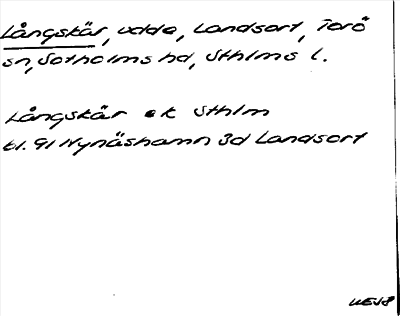 Långskär, udde, Landsort, Torö
sn, Sotholms hd, Sthlms l.
Långskär ek Sthlm
bl. 91 Nynäshamn 3d Landsort